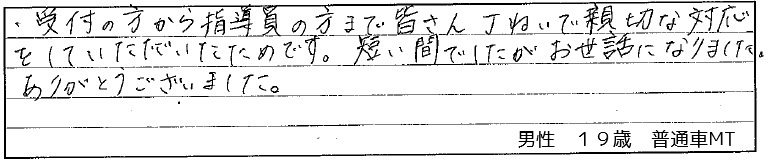 ・受付の方から指導員の方まで皆さん丁ねいで親切な対応
をしていただいたためです。短い間でしたがお世話になりました。
ありがとうございました。
男性　19歳　普通車MT